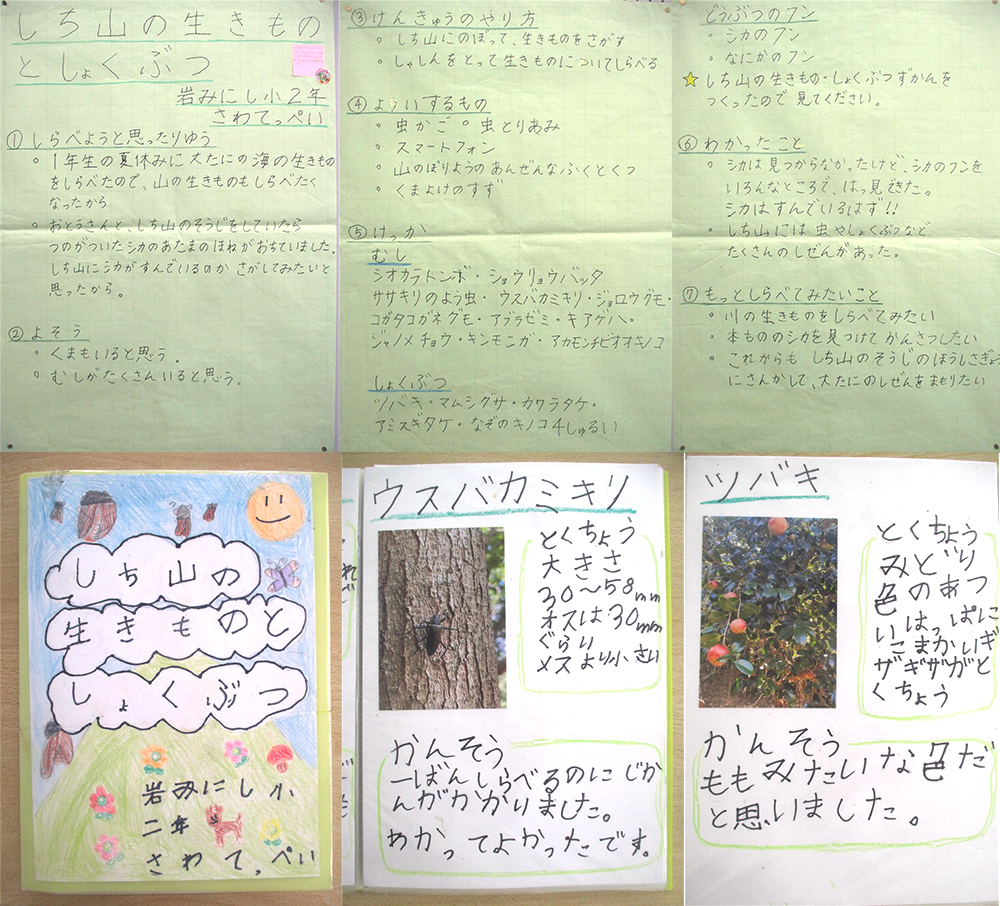 しち山の生きもの
としょくぶつ
岩みにし小2年
さわてっぺい
①しらべようと思ったりゆう
。1年生の夏休みに大たにの海の生きもの
をしらべたので、山の生きものもしらべたく
なったから
。おとうさんと、しち山のそうじをしていたら
つのがついたシカのあたまのほねがおちていました。
しち山にシカがすんでいるのかさがしてみたいと
思ったから。
②よそう
。くまもいると思う。
。むしがたくさんいると思う。
③けんきゅうのやり方
。しち山にのぼって、生きものをさがす
。しゃしんをとって生きものについてしらべる
④よういするもの
。虫かご。虫とりあみ
。スマートフォン
。山のぼりようのあんぜんなふくとくつ
。くまよけのすず
⑤けっか
むし
シオカラトンボ・ショウリョウバッタ
ササキリのよう虫・ウスバカミキリ・ジョロウグモ・
コガタコガネグモ・アブラゼミ・キアゲハ・
ジャノメチョウ・キンモンガ・アカモンチビオオキノコ
しょくぶつ
ツバキ・マムシグサ・カワラタケ・
アミスギタケ・なぞのキノコ4しゅるい
どうぶつのフン
。シカのフン
。なにかのフン
しち山の生きもの・しょくぶつずかんを
つくったので見てください。
⑥わかったこと
。シカは見つからなかったけど、シカのフンを
いろんなところで、はっ見できた。
シカはすんでいるはず!!
。しち山には虫やしょくぶつなど
たくさんのしぜんがあった。
⑦もっとしらべてみたいこと
。川の生きものをしらべてみたい
。本もののシカを見つけてかんさつしたい
。これからもしち山のそうじのほうしさぎょう
にさんかして、大たにのしぜんをまもりたい
しち山の
生きものと
しょくぶつ
岩みにし小
二年
さわてっぺい
ウスバカミキリ
とくちょう
大きさ
30〜58mm
オスは30mm
ぐらい
メスより小さい
かんそう
一ばんしらべるのにじか
んがかかりました。
わかってよかったです。
ツバキ
とくちょう
みどり
色のあつ
いはっぱに
こまかいギ
ザギザがと
くちょう
かんそう
ももみたいな色だ
と思いました。